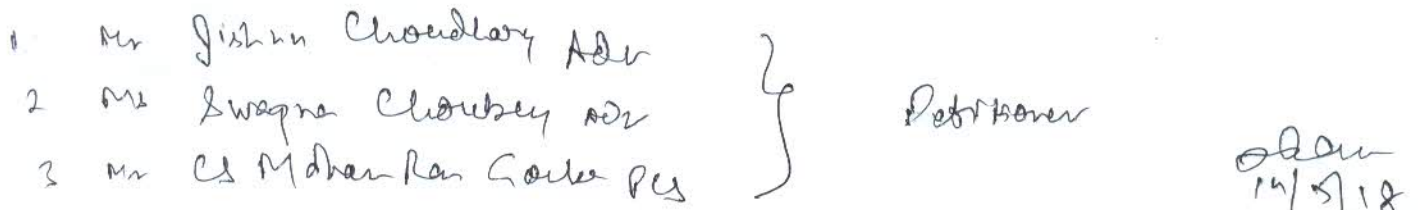 1 Mr Jishnu Choudhary Adv
2 Ms Swapna Choubey Adv
3 Mr CS Mohan Ram Goenka PCS
Petitioner
14/5/18